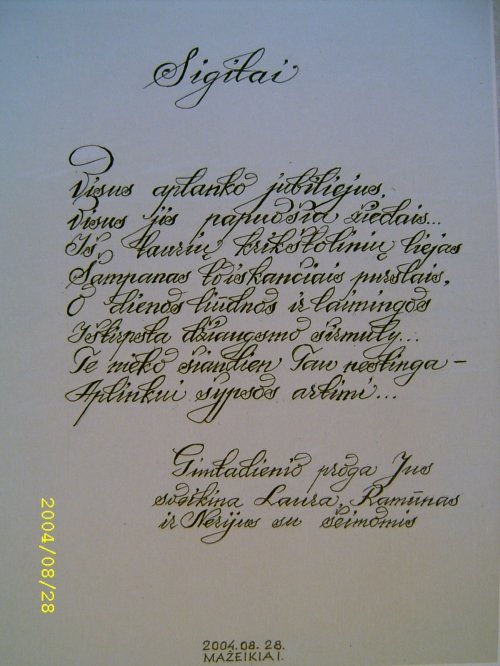 Sigitai
Visus aplanko jubiliejus,
Visus jis papuošia žiedais...
Iš taurių krikštolinių liejas
Šampanas toiskančiais purslais,
O dienos liūdnos ir laimingos
Ištirpsta džiaugsmo sūrmuly...
Te nieko šiandien Tau nestinga –
Aplinkui šypsos artimi...
Gimtadienio proga Jus
sveikina Laura, Ramūnas
ir Nerijus su šeimomis
2004/08/28
2004.08.28.
MAŽEIKIAI.